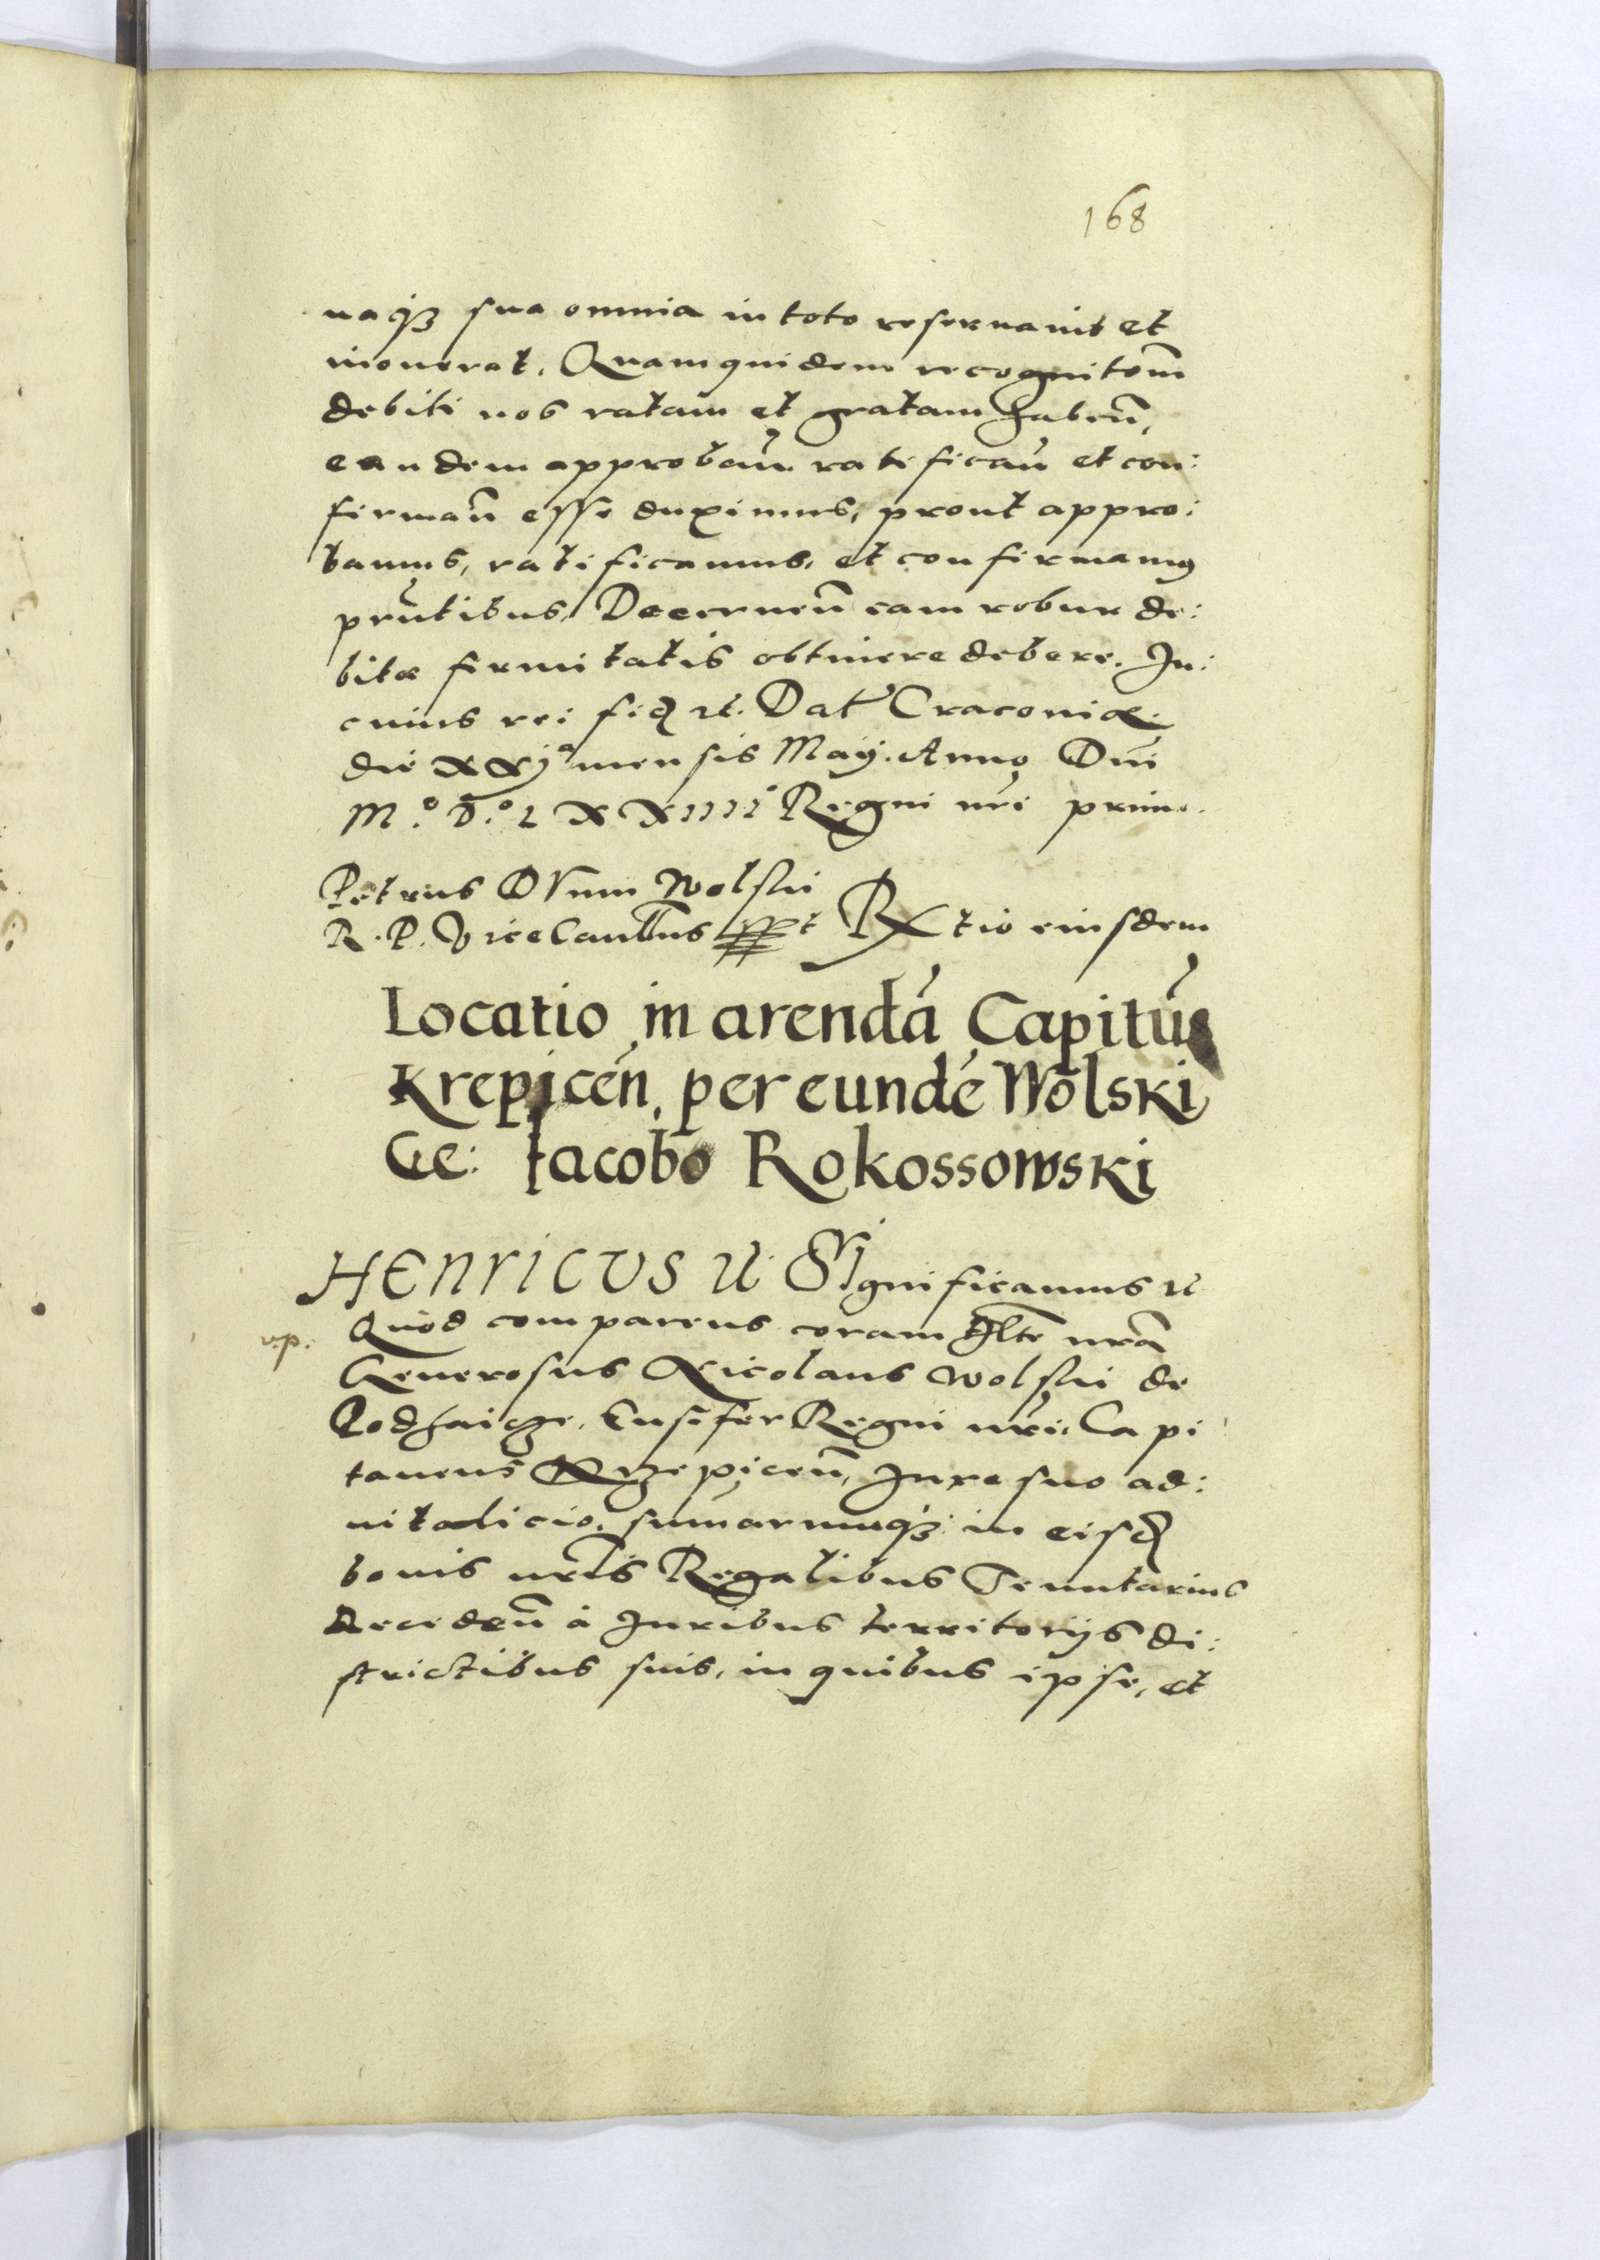 168
uaqз sua omnia in toto reseruauit et
inouerat. Quamquidem recognitōm
debiti nos ratam et gratam haben̄,
eandem approban̄ ratifican̄ et con:
firman̄ esse duximus, prout appro:
bamus, ratificamus, et confirmamus
prn̄tibus, Decernen̄ eam robur de:
bitæ firmitatis obtinere debere. In:
cuius rei fid etc. Dat Cracouiæ.
die xxja mensis Maij. Anno Dnī
Mo. Do. LXXIIIIo Regni nr̄i primo.
Petrus Dunin Wolski
R. P. Vicecancͣllius sspt Rtio eiusdem
Locatio in arendā Capitū
Krepicēn, per eundē Wolski
Ge: Iacobo Rokossowski
HENRICUS etc. Significamus etc
v.p.
Quod comparens coram nrā
Generosus Nicolaus Wolski de
Podhaicze. Ensifer Regni nr̄i, Capi
taneus Krzepicen̄, Iure suo ad:
uitalicio, sum̄arumqз in eisd
bonis nr̄is Regalibus Tenutarius
Decedēn à Iuribus territorijs di:
strictibus suis, in quibus ipse, et